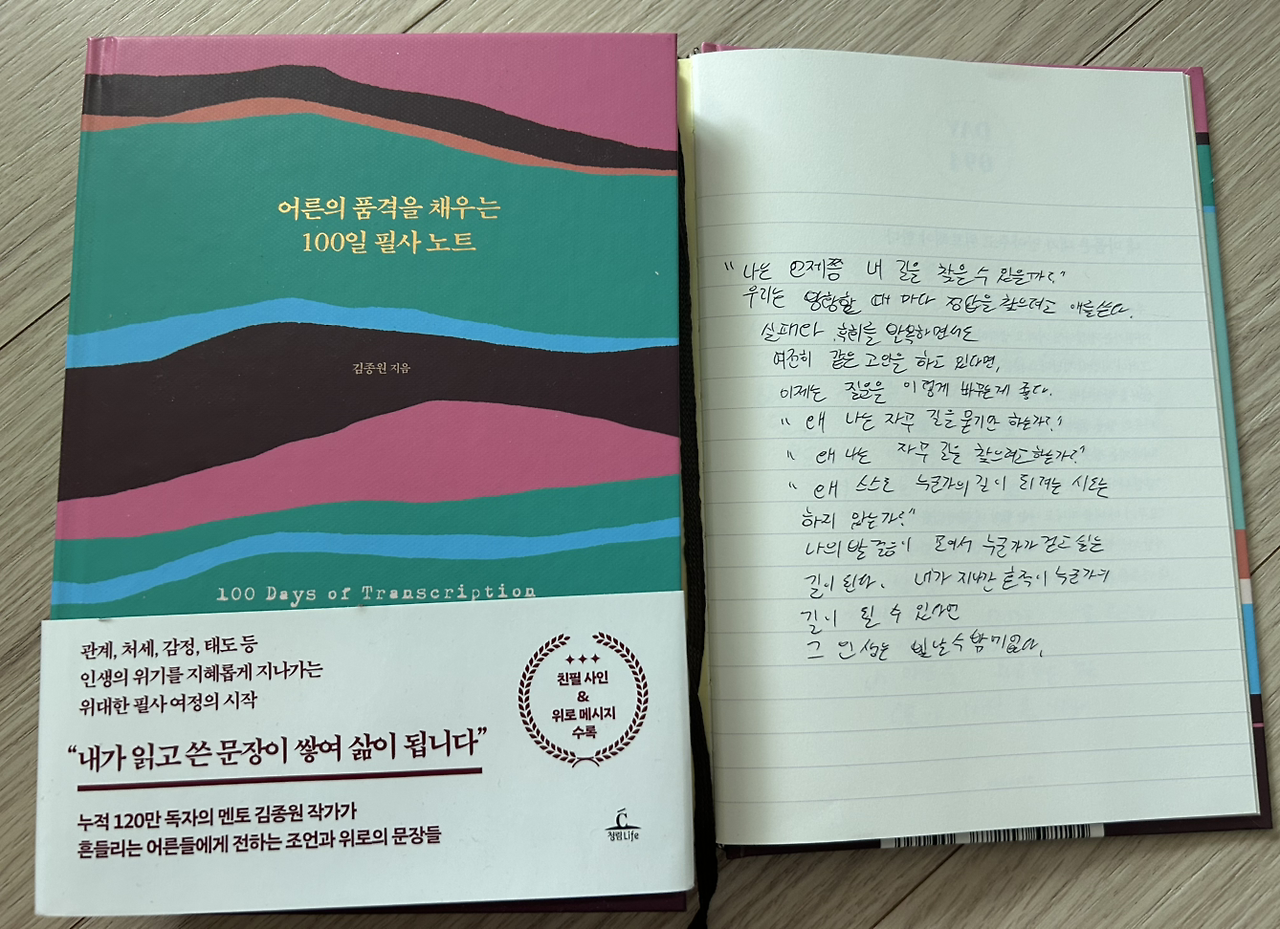 어른의 품격을 채우는
100일 필사 노트
김종원 지음
100 Days of Transcription
관계, 처세, 감정, 태도 등
인생의 위기를 지혜롭게 지나가는
위대한 필사 여정의 시작
“내가 읽고 쓴 문장이 쌓여 삶이 됩니다”
누적 120만 독자의 멘토 김종원 작가가
흔들리는 어른들에게 전하는 조언과 위로의 문장들
친필 사인
&
위로 메시지
수록
청림Life
DAY
"나는 언제쯤 내 길을 찾을 수 있을까?"
우리는 방황할 때 마다 정답을 찾으려고 애를쓴다.
실패와 후회를 반복하면서도
여전히 같은 고민을 하고 있다면,
이제는 질문을 이렇게 바꾸는게 좋다.
" 왜 나는 자꾸 길을 묻기만 하는가?"
" 왜 나는 자꾸 길을 찾으려고하는가?"
" 왜 스스로 누군가의 길이 되려는 시도는
하지 않는가?"
나의 발걸음이 모여서 누군가가 걷고 싶은
길이 된다. 내가 지나간 흔적이 누군가의
길이 될 수 있다면
그 인생은 빛날수밖에없다.